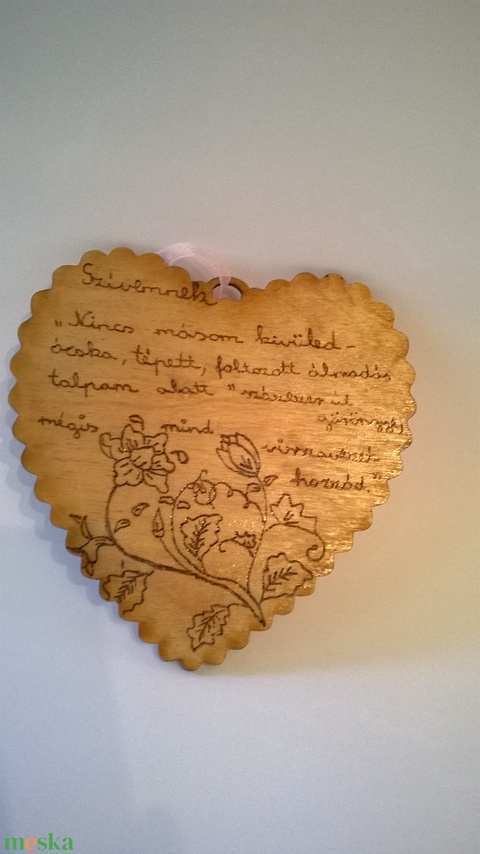 Szívemnek
„Nincs másom kívüled -
ócska, tépett, foltozott álmodás
talpam alatt "százezer út
györöngye,
mégis mind
hozzád."
meska